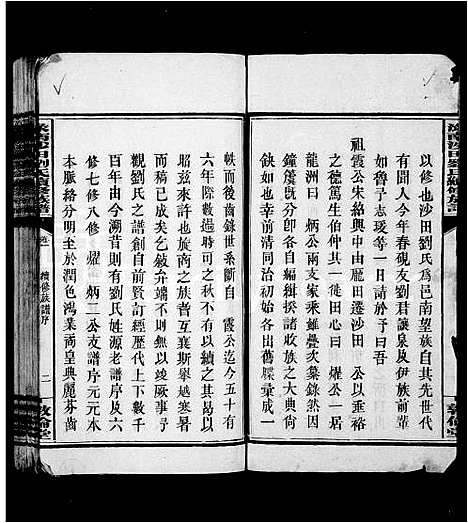 以修也沙田劉氏為邑南望族自其先世代
有聞人今年春硯友劉君讓泉及伊族前輩
如魯予志瑗等一日請於予曰吾
祖霞公宋紹興中由鹿田遷沙田 公垂裕
之德篤生伯仲其一徙田心曰 燿公一居
龍洲曰 炳公兩支家乘雖疊次錄然因
鐘簴既分各自編揆諸收族之大典尚
缺如也幸前清同治初各出舊牒彙成一
帙而後齒錄世系斷自 霞公迄今五十有
六年際數過時可之秋不有以續之其曷以
昭茲來許也族之賢者互襄斯舉越寒暑
而稿已成矣乞敘弁端不則無以竣厥事予
觀劉氏之譜創自前賢訂經歷代上下數
百年由今溯昔則有劉氏姓源老譜序及六
修七修八修 燿 炳二公支譜序元元本
本脈絡分明至於潤色鴻業兩皇典麗芬齒
續修族譜序
二
敦倫堂